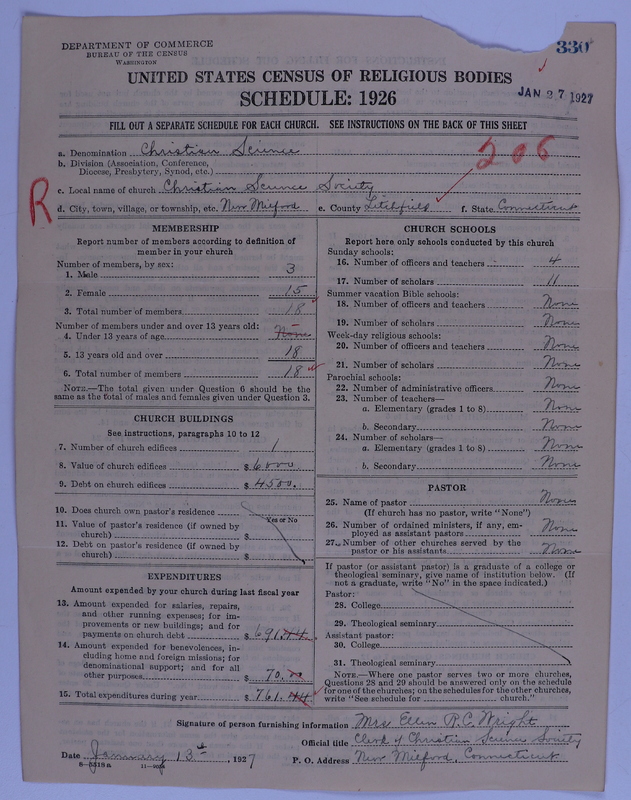 330
DEPARTMENT OF COMMERCE
BUREAU OF THE CENSUS
WASHINGTON
UNITED STATES CENSUS OF RELIGIOUS BODIES
SCHEDULE: 1926
JAN 27 1927
FILL OUT A SEPARATE SCHEDULE FOR EACH CHURCH. SEE INSTRUCTIONS ON THE BACK OF THIS SHEET
206
R
a. Denomination Christian Science
b. Division (Association, Conference,
Diocese, Presbytery, Synod, etc.)
c. Local name of church Christian Science Society
d. City, town, village, or township, etc. New Milford e. County Litchfield f. State Connecticut
MEMBERSHIP
Report number of members according to definition of
member in your church
Number of members, by sex:
1. Male 3
2. Female 15
3. Total number of members 18
Number of members under and over 13 years old:
4. Under 13 years of age None
5. 13 years old and over 18
6. Total number of members 18
NOTE.—The total given under Question 6 should be the
same as the total of males and females given under Question 3.
CHURCH BUILDINGS
See instructions, paragraphs 10 to 12
7. Number of church edifices 1
8. Value of church edifices $ 6000
9. Debt on church edifices $ 4500.
10. Does church own pastor's residence
Yes or No
11. Value of pastor's residence (if owned by
church) $
12. Debt on pastor's residence (if owned by
church) $
EXPENDITURES
Amount expended by your church during last fiscal year
13. Amount expended for salaries, repairs,
and other running expenses; for im-
provements or new buildings; and for
payments on church debt $ 691.44
14. Amount expended for benevolences, in-
cluding home and foreign missions; for
denominational support; and for all
other purposes $ 70.00
15. Total expenditures during year $ 761.44
CHURCH SCHOOLS
Report here only schools conducted by this church
Sunday schools:
16. Number of officers and teachers 4
17. Number of scholars 11
Summer vacation Bible schools:
18. Number of officers and teachers None
19. Number of scholars None
Week-day religious schools:
20. Number of officers and teachers None
21. Number of scholars None
Parochial schools:
22. Number of administrative officers None
23. Number of teachers—
a. Elementary (grades 1 to 8) None
b. Secondary None
24. Number of scholars—
a. Elementary (grades 1 to 8) None
b. Secondary None
PASTOR
25. Name of pastor None
(If church has no pastor, write "None")
26. Number of ordained ministers, if any, em-
ployed as assistant pastors None
27. Number of other churches served by the
pastor or his assistants None
If pastor (or assistant pastor) is a graduate of a college or
theological seminary, give name of institution below. (If
not a graduate, write "No" in the space indicated.)
Pastor:
28. College
29. Theological seminary
Assistant pastor:
30. College
31. Theological seminary
NOTE.—Where one pastor serves two or more churches,
Questions 28 and 29 should be answered only on the schedule
for one of the churches; on the schedules for the other churches,
write "See schedule for church."
Signature of person furnishing information Mrs Ellen R.C. Wright
Official title Clerk of Christian Science Society
Date January 13th, 1927 P. O. Address New Milford, Connecticut
8-5518a